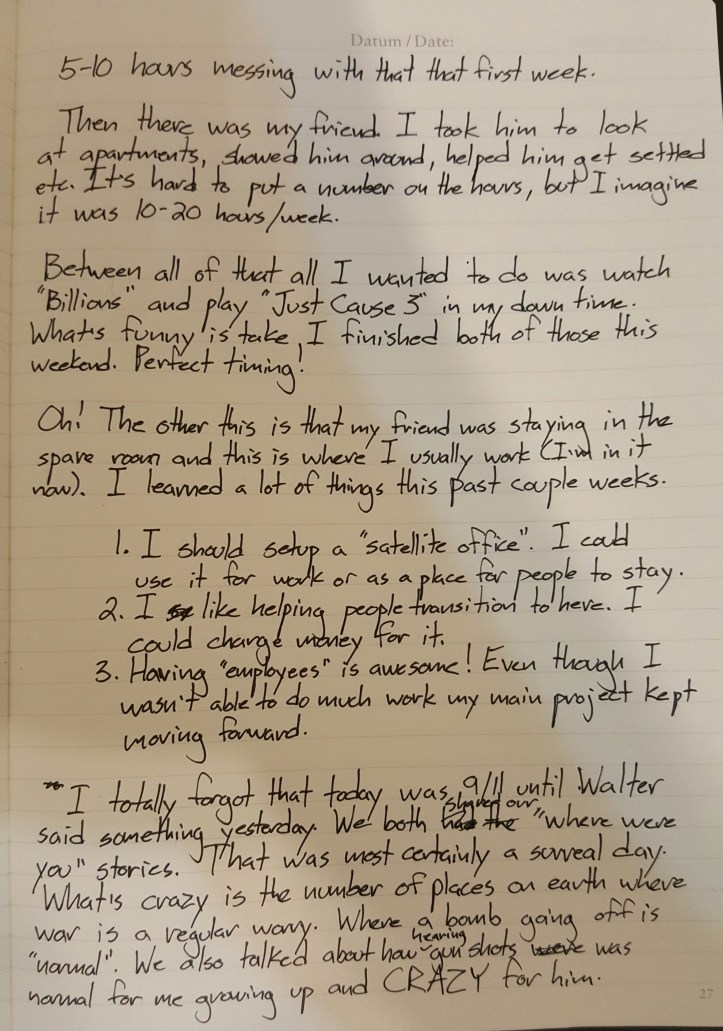 Datum / Date:
5-10 hours messing with that that first week.
Then there was my friend. I took him to look
at apartments, showed him around, helped him get settled
etc. It's hard to put a number on the hours, but I imagine
it was 10-20 hours/week.
Between all of that all I wanted to do was watch
"Billions" and play "Just Cause 3" in my down time.
What's funny is take, I finished both of those this
weekend. Perfect timing!
Oh! The other this is that my friend was staying in the
spare room and this is where I usually work (I'm in it
now). I learned a lot of things this past couple weeks.
1. I should setup a "satellite office". I could
use it for work or as a place for people to stay.
2. I like helping people transition to here. I
could charge money for it.
3. Having "employees" is awesome! Even though I
wasn't able to do much work my main project kept
moving forward.
I totally forgot that today was 9/11 until Walter
said something yesterday. We both shared our "where were
you" stories. That was most certainly a surreal day.
What's crazy is the number of places on earth where
war is a regular worry. Where a bomb going off is
"normal". We also talked about how hearing gun shots was
normal for me growing up and CRAZY for him.
27